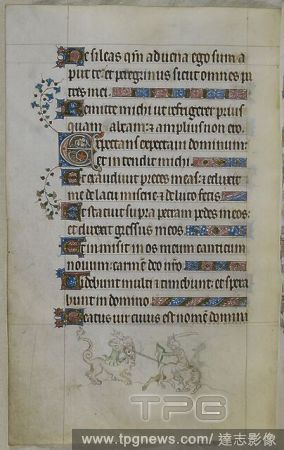 Ne sileas qm aduena ego sum a
put te: et peregrinus sicut omnes pa
tres mei.
Remitte michi ut refrigerer prius
quam abeam: et amplius non ero.
Expectans expectaui dominum:
et intendit michi.
Et exaudiuit preces meas: et eduxit
de lacu miserie et de luto fecis.
Et statuit supra petram pedes meos:
et direxit gressus meos.
Et inmisit in os meum canticum
nouum: carmen deo nro.
Uidebunt multi et timebunt: et spera
bunt in domino.
Beatus uir cuius est nomen domini
TPG
www.tpgnews.com/達志影像